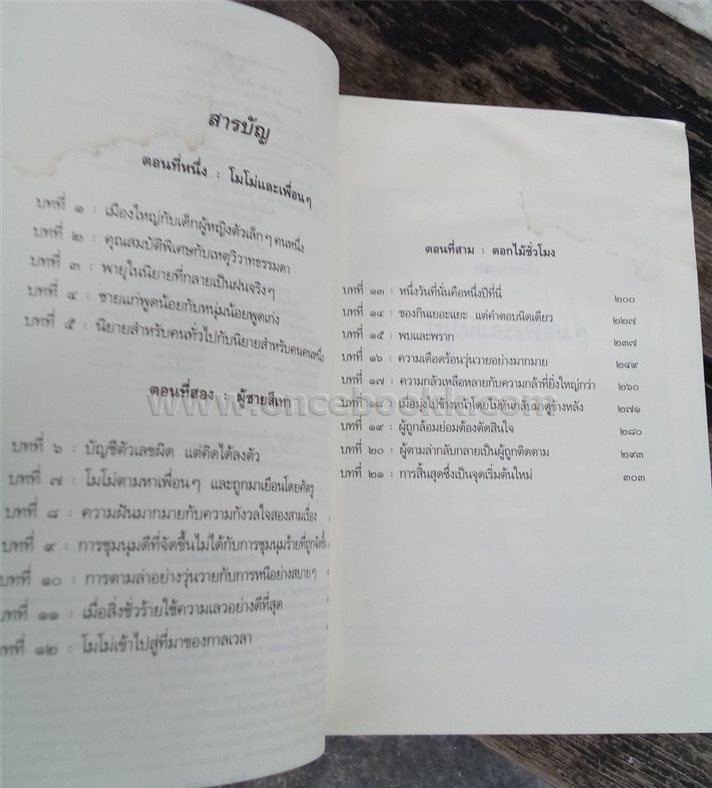 สารบัญ
ตอนที่หนึ่ง : โมโม่และเพื่อนๆ
บทที่ ๑ : เมืองใหญ่กับเด็กผู้หญิงตัวเล็กๆ คนหนึ่ง
บทที่ ๒ : คุณสมบัติพิเศษกับเหตุวิวาทธรรมดา
บทที่ ๓ : พายุในนิยายที่กลายเป็นฝนจริงๆ
บทที่ ๔ : ชายแก่พูดน้อยกับหนุ่มน้อยพูดเก่ง
บทที่ ๕ : นิยายสำหรับคนทั่วไปกับนิยายสำหรับคนคนหนึ่ง
ตอนที่สอง : ผู้ชายสีเทา
บทที่ ๖ : บัญชีตัวเลขผิด แต่คิดได้ลงตัว
บทที่ ๗ : โมโม่ตามหาเพื่อนๆ และถูกมาเยือนโดยศัตรู
บทที่ ๘ : ความฝันมากมายกับความกังวลใจสองสามเรื่อง
บทที่ ๙ : การชุมนุมดีที่จัดขึ้นไม่ได้กับการชุมนุมร้ายที่ถูกจัดขึ้น
บทที่ ๑๐ : การตามล่าอย่างวุ่นวายกับการหนีอย่างสบายๆ
บทที่ ๑๑ : เมื่อสิ่งชั่วร้ายใช้ความเลวอย่างดีที่สุด
บทที่ ๑๒ : โมโม่เข้าไปสู่ที่มาของกาลเวลา
ตอนที่สาม : ดอกไม้ชั่วโมง
บทที่ ๑๓ : หนึ่งวันที่นั่นคือหนึ่งปีที่นี่ ๒๐๐
บทที่ ๑๔ : ของกินเยอะแยะ แต่คำตอบนิดเดียว ๒๒๗
บทที่ ๑๕ : พบและพราก ๒๓๗
บทที่ ๑๖ : ความเดือดร้อนวุ่นวายอย่างมากมาย ๒๔๙
บทที่ ๑๗ : ความกลัวเหลือหลายกับความกล้าที่ยิ่งใหญ่กว่า ๒๖๐
บทที่ ๑๘ : เมื่อมุ่งไปข้างหน้าโดยไม่หันกลับมาดูข้างหลัง ๒๗๑
บทที่ ๑๙ : ผู้ถูกล้อมย่อมต้องตัดสินใจ ๒๘๐
บทที่ ๒๐ : ผู้ตามล่ากลับกลายเป็นผู้ถูกติดตาม ๒๙๓
บทที่ ๒๑ : การสิ้นสุดซึ่งเป็นจุดเริ่มต้นใหม่ ๓๐๓
www.oncebookk.com